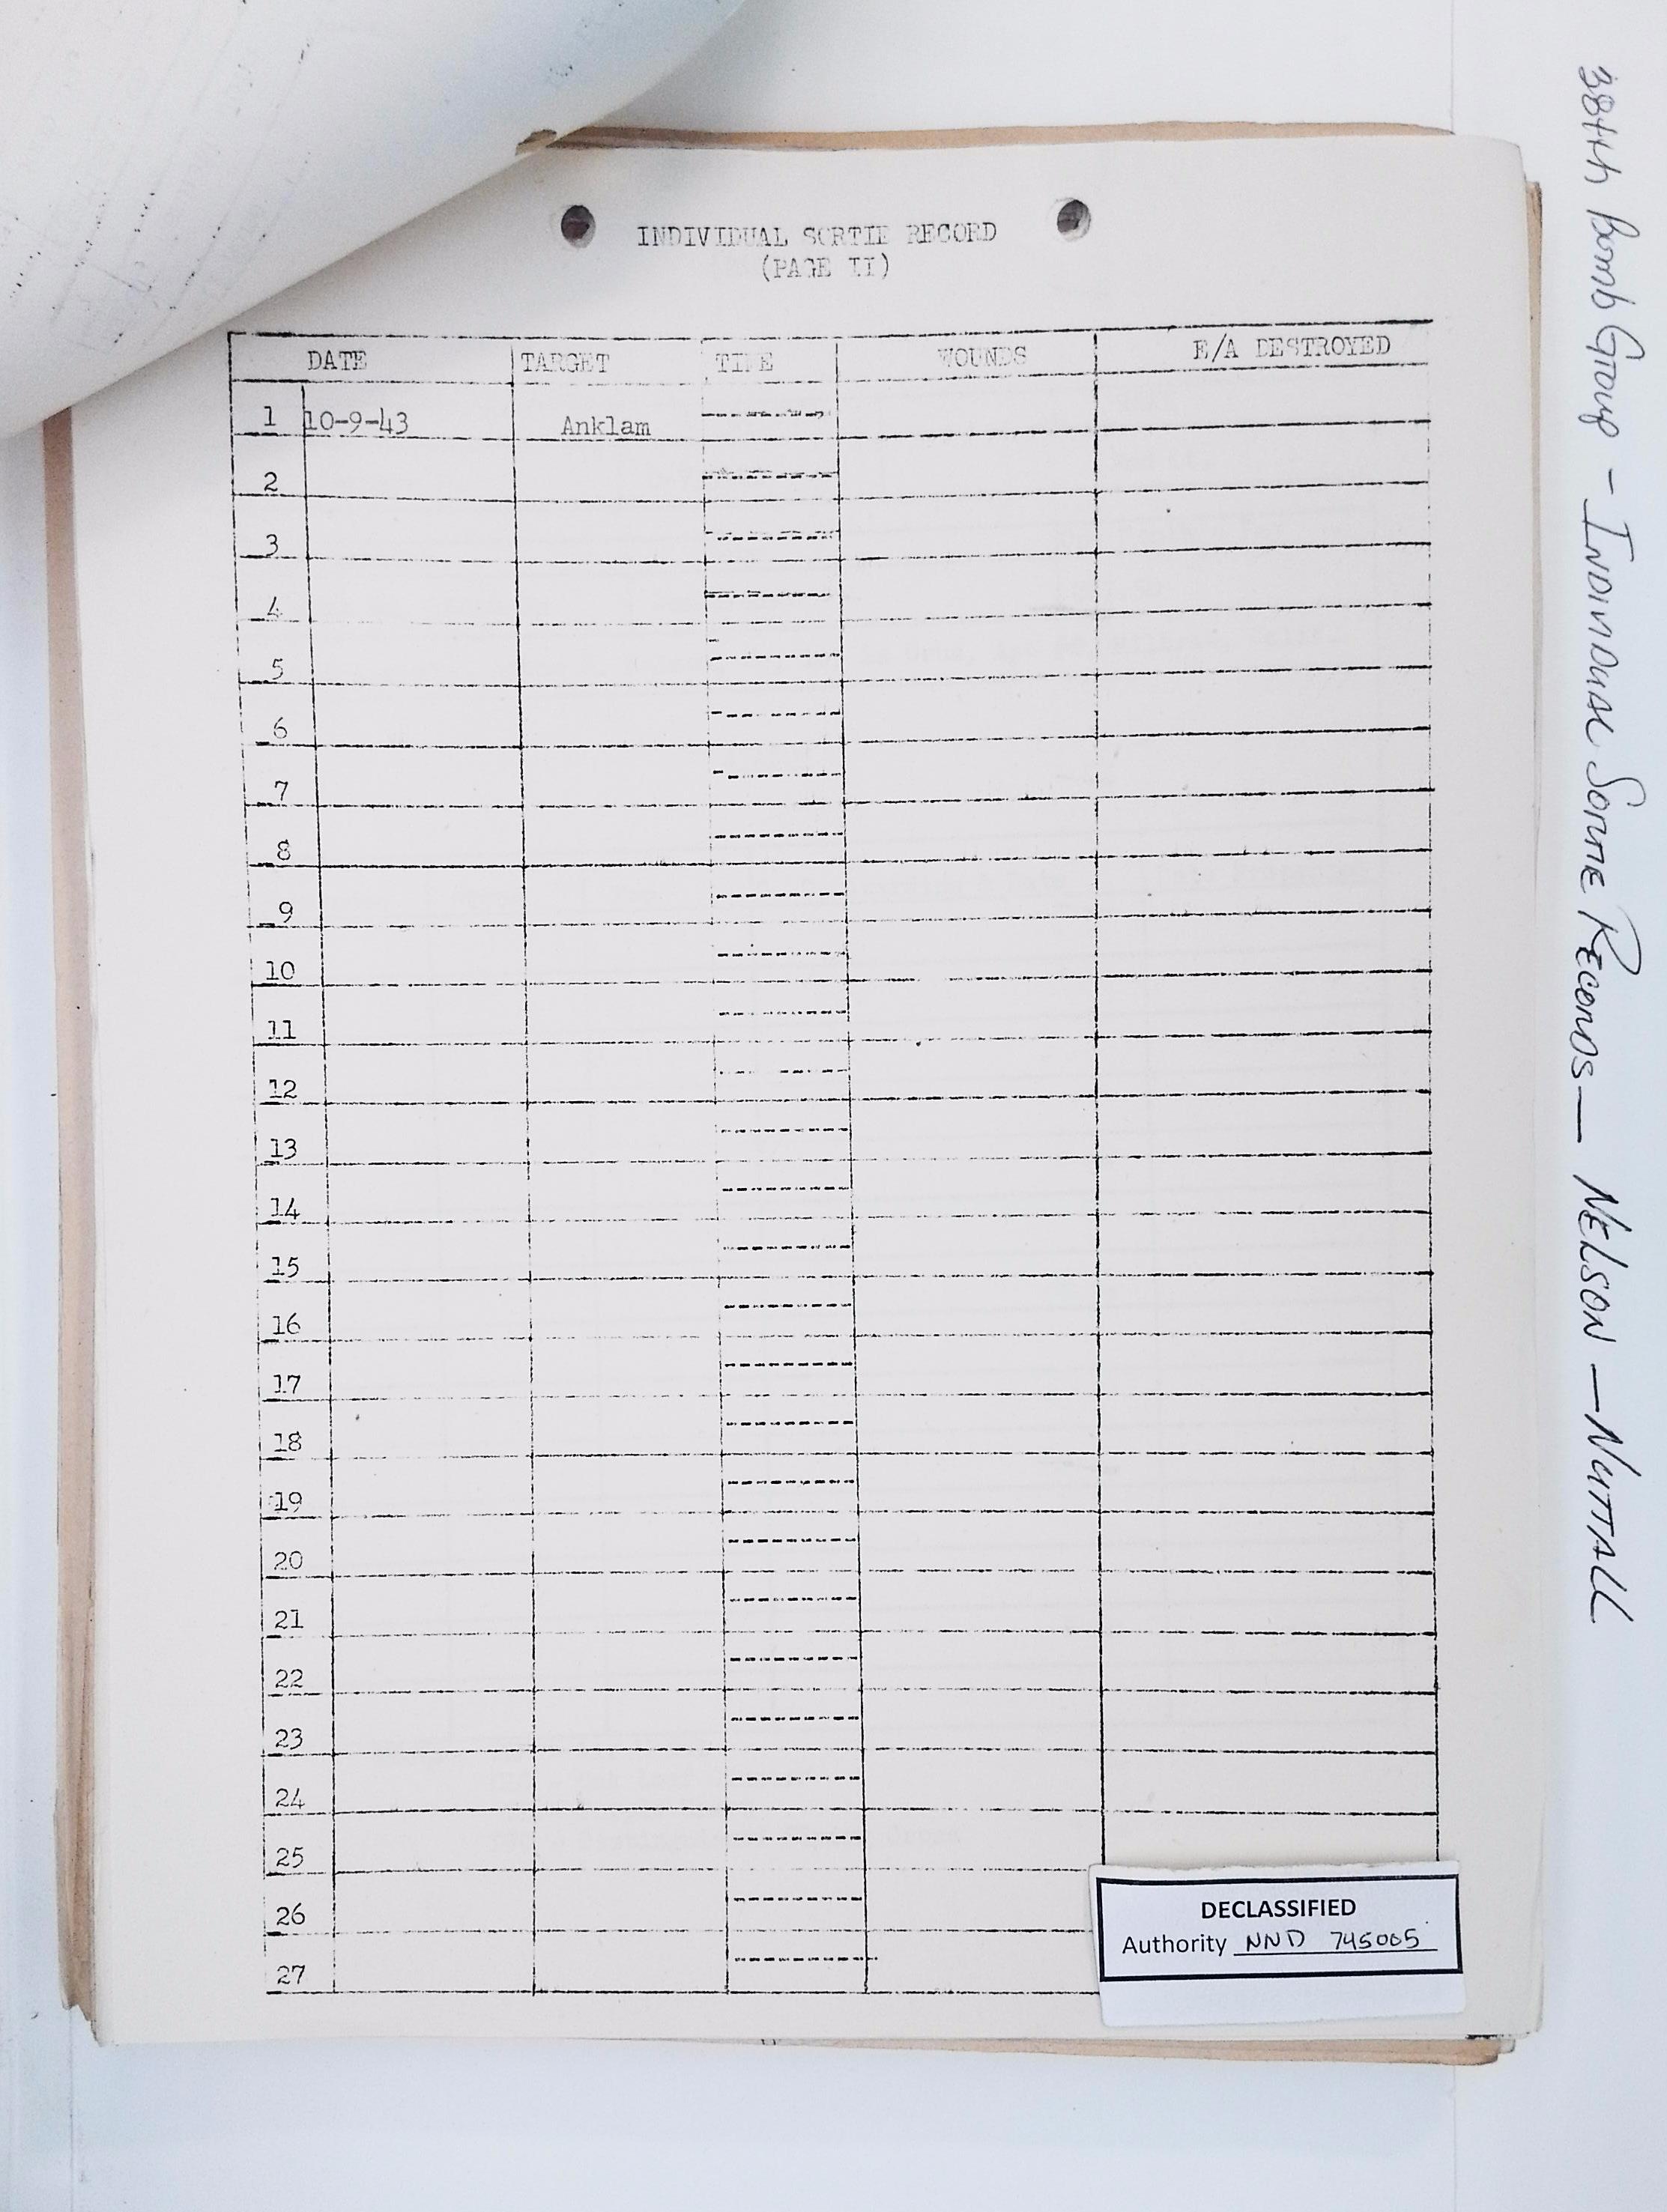 INDIVIDUAL SORTIE RECORD
(PAGE II)
DATE TARGET TIME WOUNDS E/A DESTROYED
1 10-9-43 Anklam
2
3
4
5
6
7
8
9
10
11
12
13
14
15
16
17
18
19
20
21
22
23
24
25
26
27
DECLASSIFIED
Authority NND 745005
384th Bomb Group - INDIVIDUAL SORTIE RECORDS — NELSON — NUTTALL